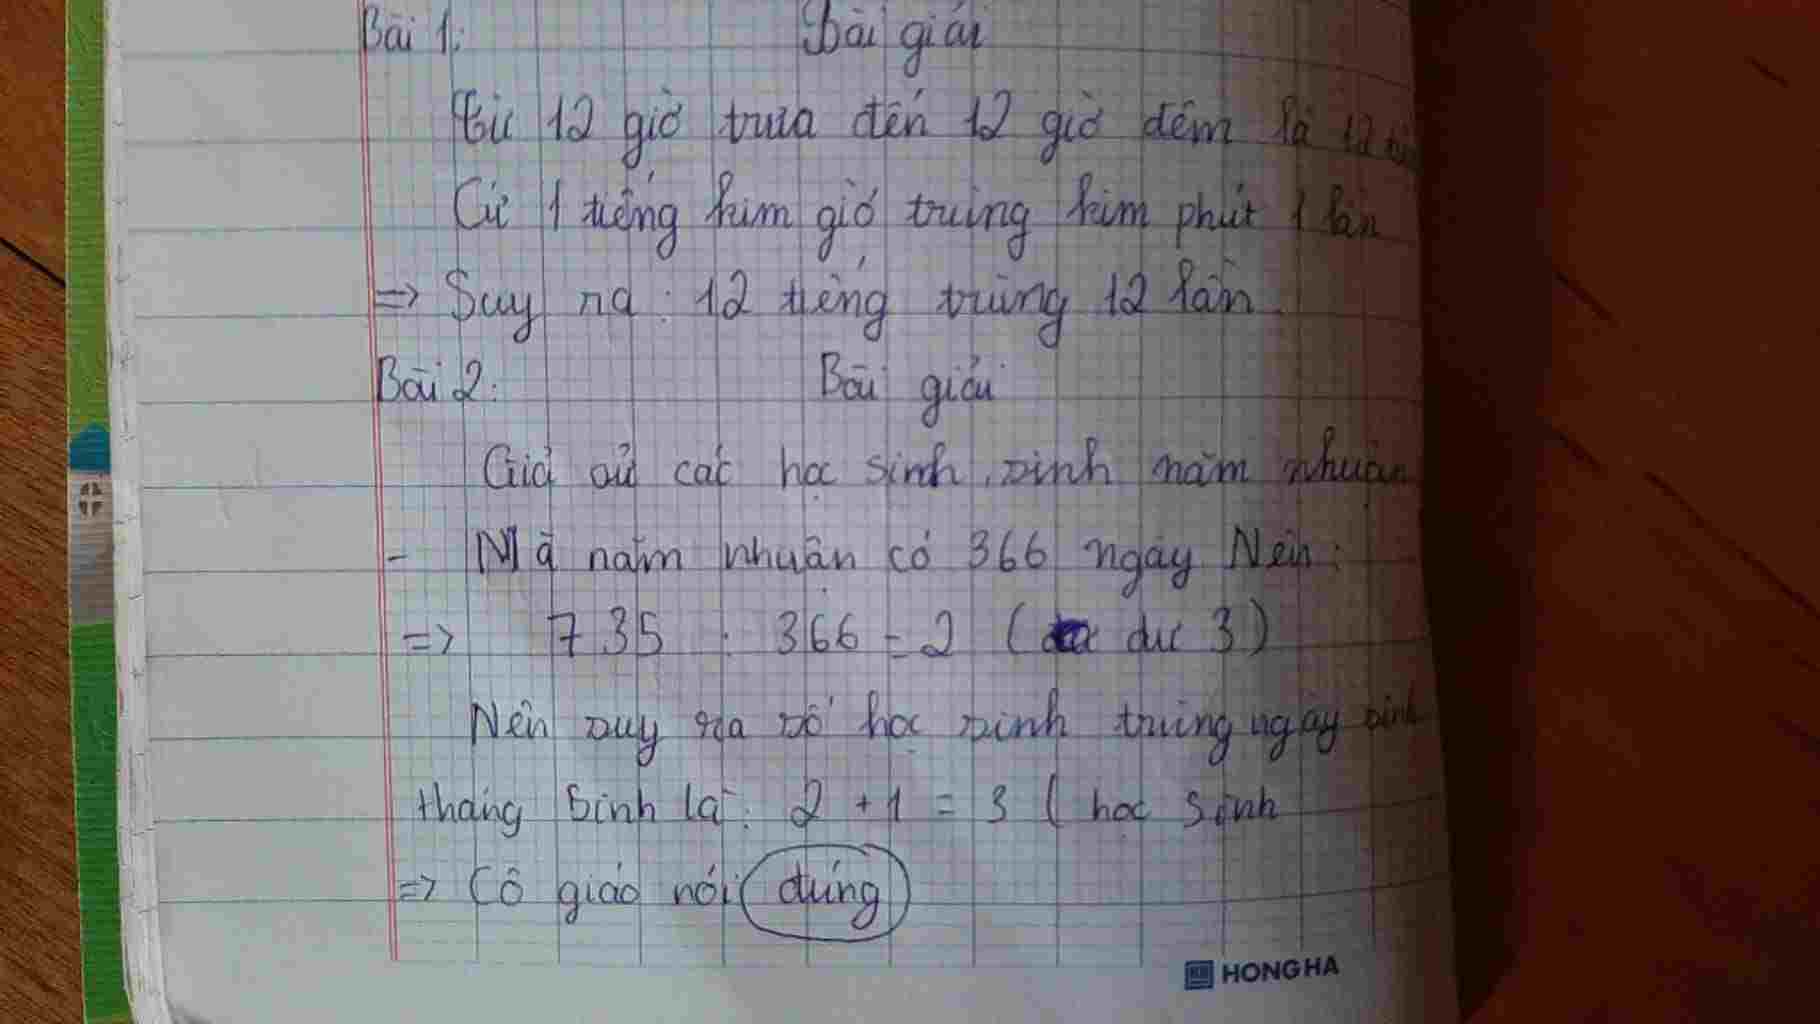 Bài 1: Bài giải
Từ 12 giờ trưa đến 12 giờ đêm là 12
Cứ 1 tiếng kim giờ trùng kim phút 1 lần
=> Suy ra : 12 tiếng trùng 12 lần.
Bài 2: Bài giải
Giả sử các học sinh sinh năm nhuận
- Mà năm nhuận có 366 ngày Nên :
=> 735 : 366 = 2 ( dư 3 )
Nên suy ra số học sinh trùng ngày sinh
tháng sinh là : 2 + 1 = 3 ( học sinh
=> Cô giáo nói đúng
HONG HA